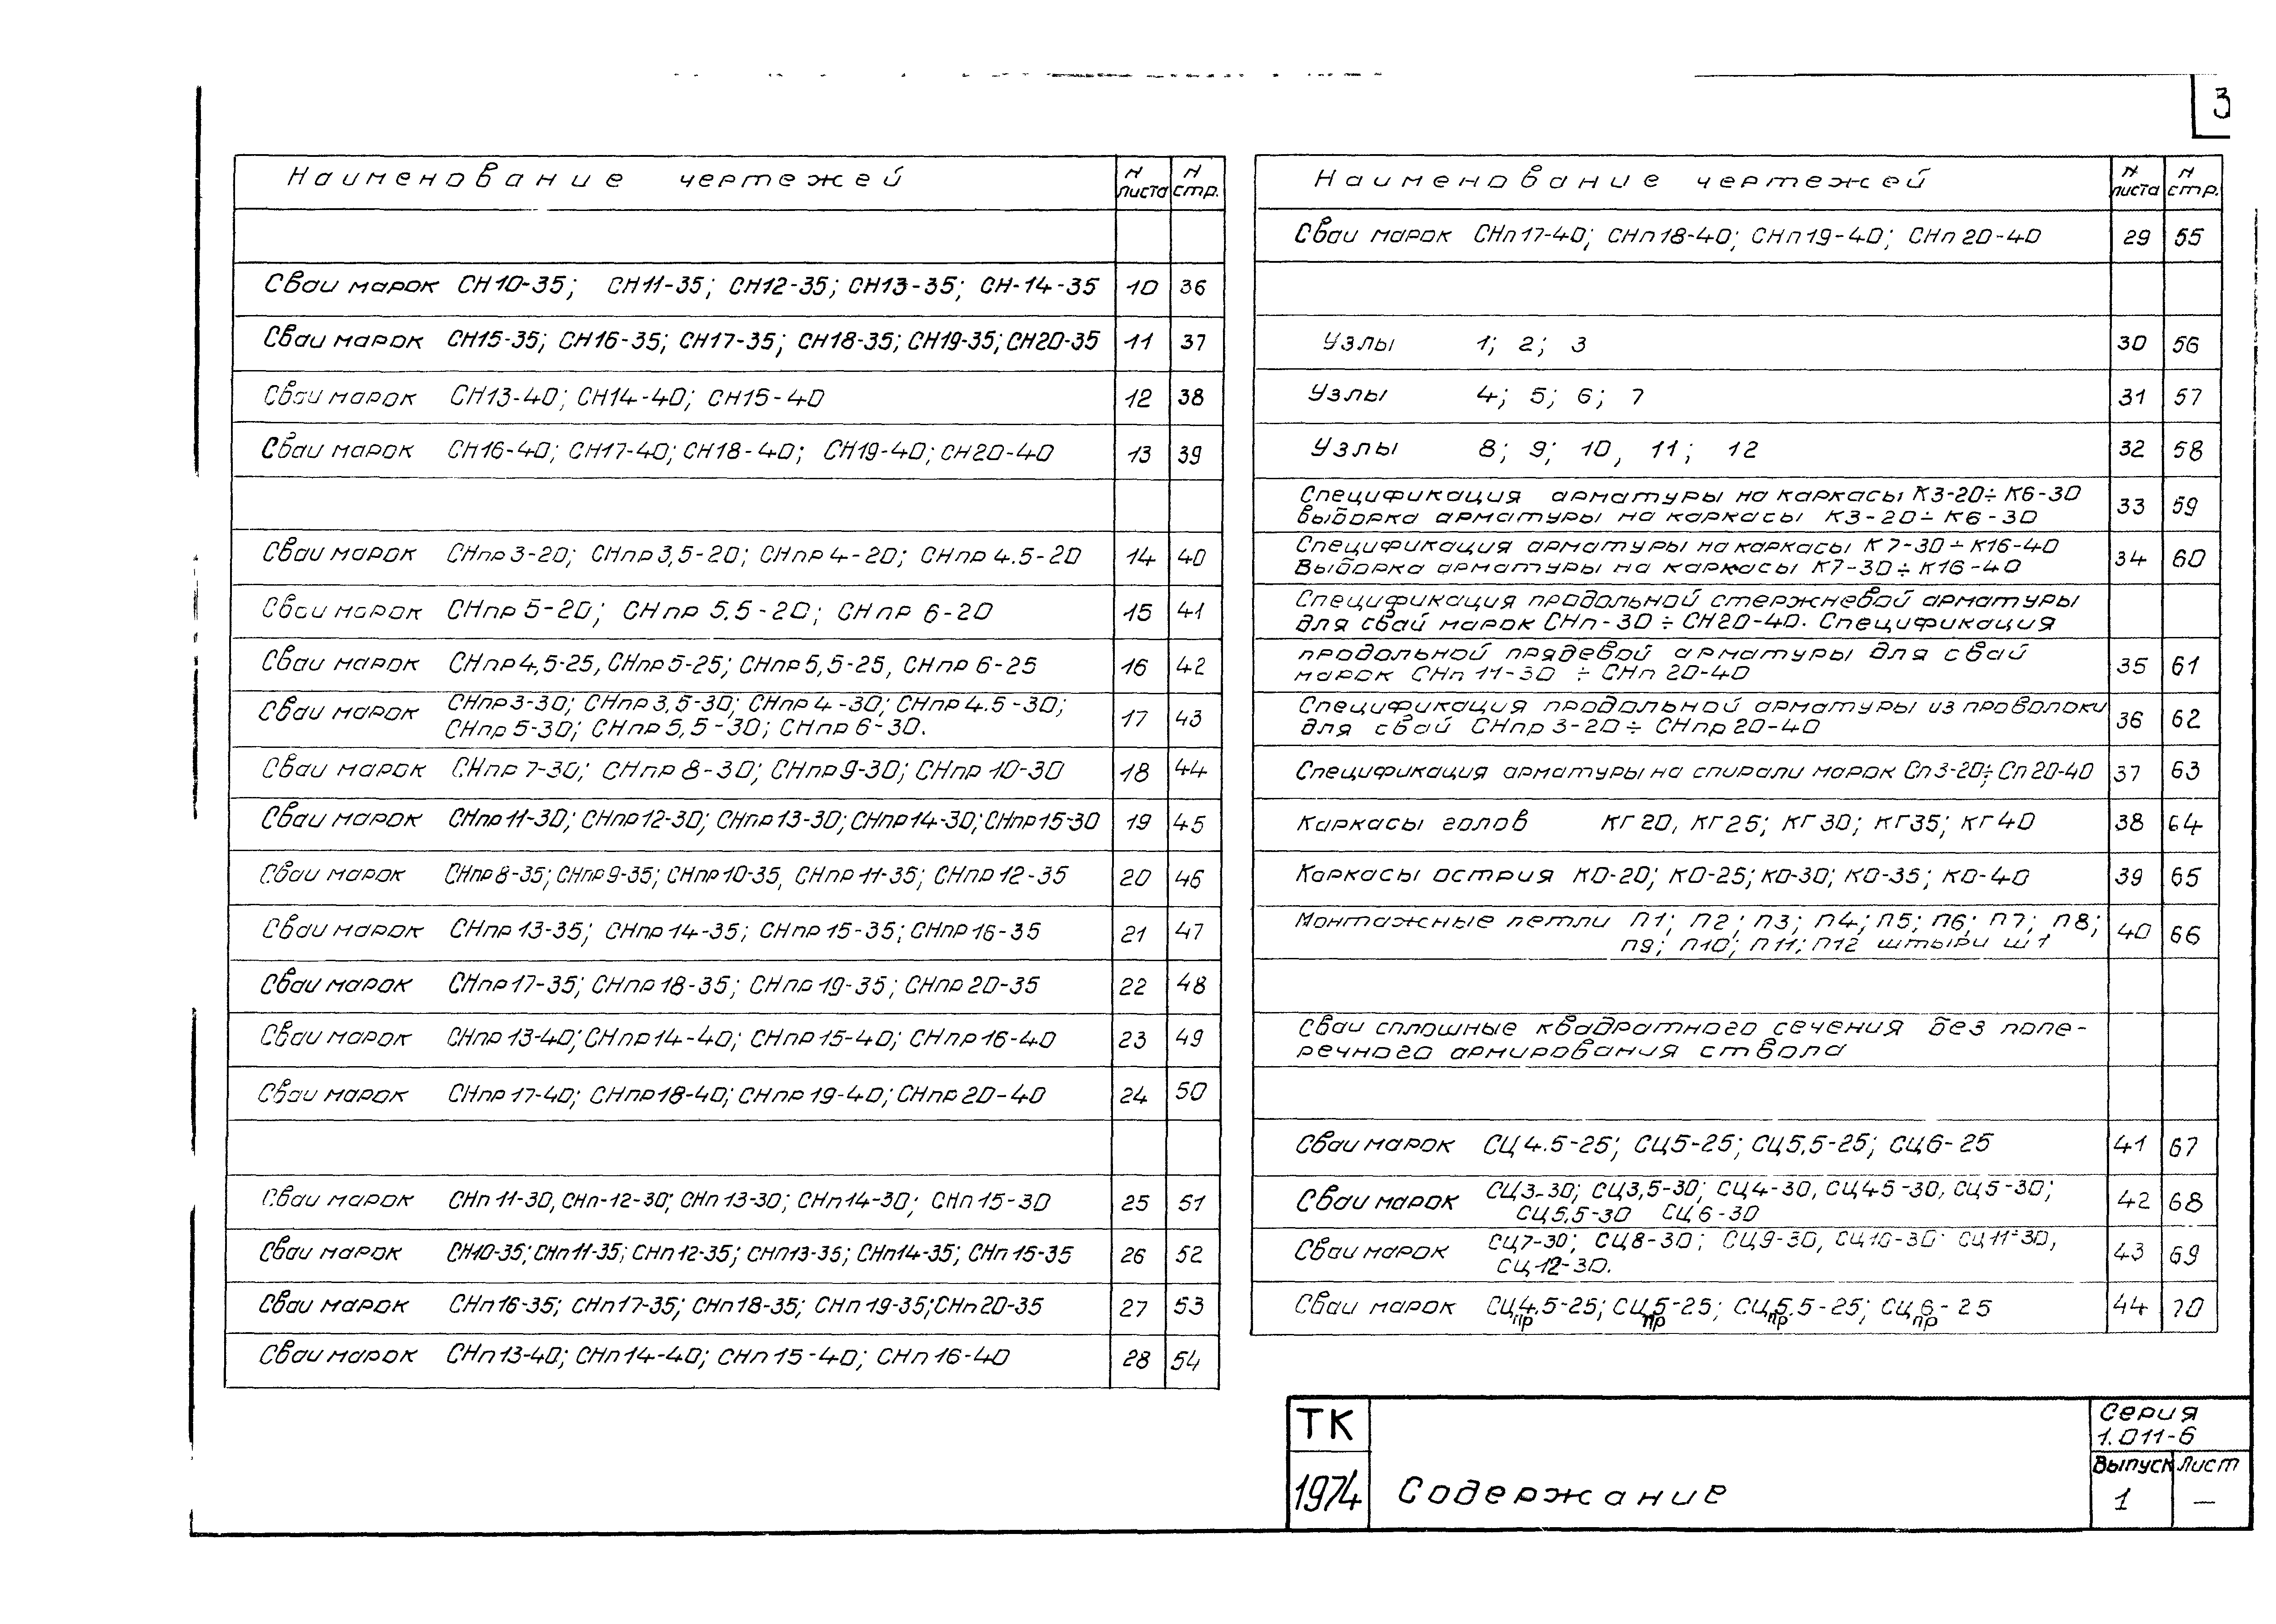 3
Наименование чертежей N листа N стр.
Сваи марок СН10-35; СН11-35; СН12-35; СН13-35; СН-14-35 10 36
Сваи марок СН15-35; СН16-35; СН17-35; СН18-35; СН19-35; СН20-35 11 37
Сваи марок СН13-40; СН14-40; СН15-40 12 38
Сваи марок СН16-40; СН17-40; СН18-40; СН19-40; СН20-40 13 39
Сваи марок СНпр3-20; СНпр3,5-20; СНпр4-20; СНпр4.5-20 14 40
Сваи марок СНпр5-20; СНпр5.5-20; СНпр6-20 15 41
Сваи марок СНпр4,5-25, СНпр5-25; СНпр5,5-25, СНпр6-25 16 42
Сваи марок СНпр3-30; СНпр3,5-30; СНпр4-30; СНпр4.5-30;
СНпр5-30; СНпр5,5-30; СНпр6-30. 17 43
Сваи марок СНпр7-30; СНпр8-30; СНпр9-30; СНпр10-30 18 44
Сваи марок СНпр11-30; СНпр12-30; СНпр13-30; СНпр14-30; СНпр15-30 19 45
Сваи марок СНпр8-35; СНпр9-35; СНпр10-35, СНпр11-35; СНпр12-35 20 46
Сваи марок СНпр13-35; СНпр14-35; СНпр15-35; СНпр16-35 21 47
Сваи марок СНпр17-35; СНпр18-35; СНпр19-35; СНпр20-35 22 48
Сваи марок СНпр13-40; СНпр14-40; СНпр15-40; СНпр16-40 23 49
Сваи марок СНпр17-40; СНпр18-40; СНпр19-40; СНпр20-40 24 50
Сваи марок СНп11-30, СНп-12-30; СНп13-30; СНп14-30; СНп15-30 25 51
Сваи марок СН10-35; СНп11-35; СНп12-35; СНп13-35; СНп14-35; СНп15-35 26 52
Сваи марок СНп16-35; СНп17-35; СНп18-35; СНп19-35; СНп20-35 27 53
Сваи марок СНп13-40; СНп14-40; СНп15-40; СНп16-40 28 54
Наименование чертежей N листа N стр.
Сваи марок СНп17-40; СНп18-40; СНп19-40; СНп20-40 29 55
Узлы 1; 2; 3 30 56
Узлы 4; 5; 6; 7 31 57
Узлы 8; 9; 10, 11; 12 32 58
Спецификация арматуры на каркасы К3-20÷К6-30
Выборка арматуры на каркасы К3-20÷К6-30 33 59
Спецификация арматуры на каркасы К7-30÷К16-40
Выборка арматуры на каркасы К7-30÷К16-40 34 60
Спецификация продольной стержневой арматуры
для свай марок СНп-30÷СН20-40. Спецификация
продольной прядевой арматуры для свай
марок СНп11-30 ÷ СНп20-40 35 61
Спецификация продольной арматуры из проволоки
для свай СНпр3-20÷СНпр20-40 36 62
Спецификация арматуры на спирали марок Сп3-20÷Сп20-40 37 63
Каркасы голов КГ20, КГ25; КГ30; КГ35; КГ40 38 64
Каркасы острия КО-20; КО-25; КО-30; КО-35; КО-40 39 65
Монтажные петли П1; П2; П3; П4; П5; П6; П7; П8;
П9; П10; П11; П12 штыри Ш1 40 66
Сваи сплошные квадратного сечения без попе-
речного армирования ствола
Сваи марок СЦ4.5-25; СЦ5-25; СЦ5,5-25; СЦ6-25 41 67
Сваи марок СЦ3-30; СЦ3,5-30; СЦ4-30, СЦ45-30, СЦ5-30;
СЦ5,5-30 СЦ6-30 42 68
Сваи марок СЦ7-30; СЦ8-30; СЦ9-30, СЦ10-30; СЦ11-30,
СЦ12-30. 43 69
Сваи марок СЦпр4,5-25; СЦпр5-25; СЦпр5.5-25; СЦпр6-25 44 70
ТК
1974
Содержание
Серия
1.011-6
Выпуск Лист
1 —